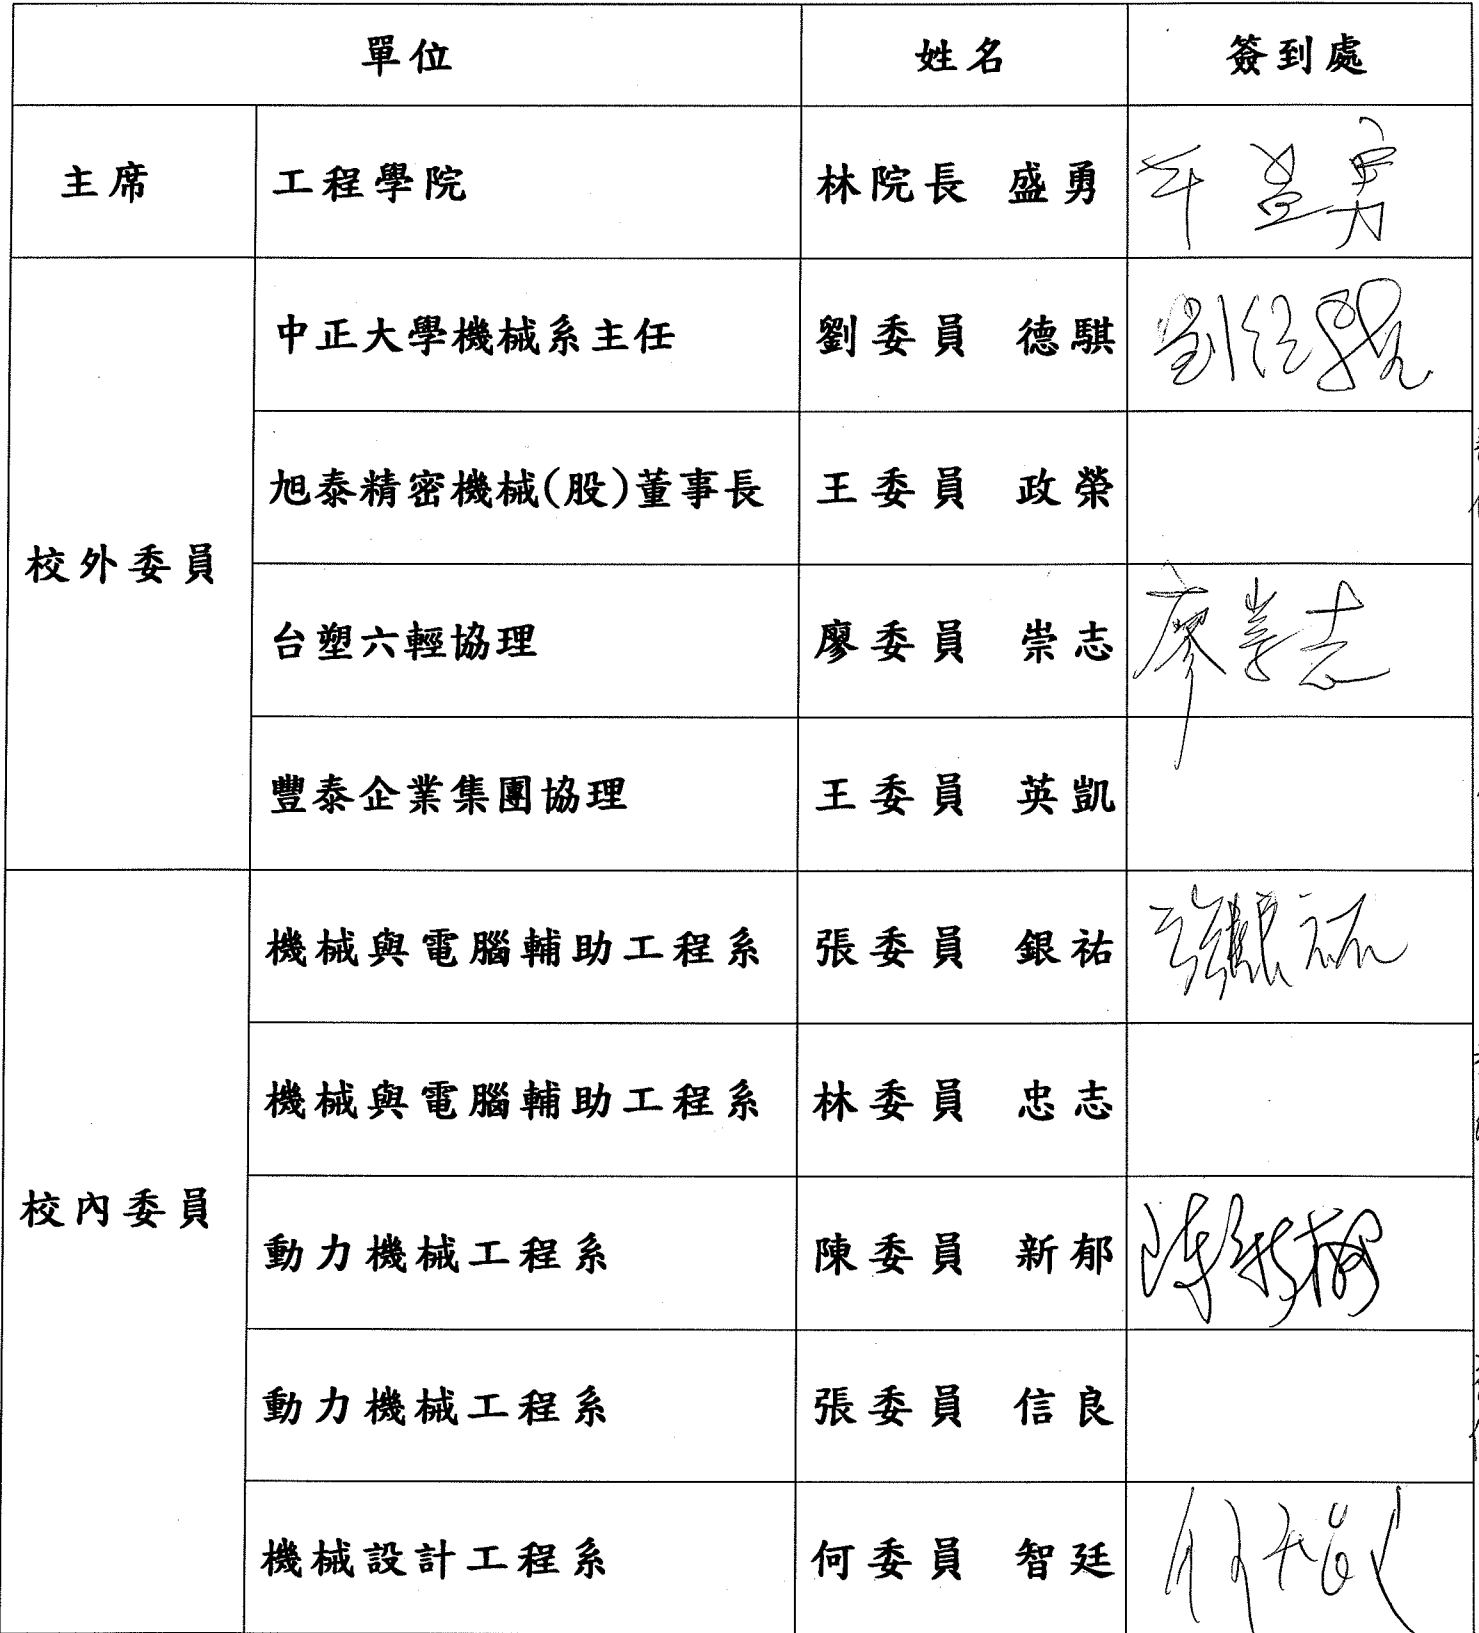 單位 姓名 簽到處
主席 工程學院 林院長 盛勇
中正大學機械系主任 劉委員 德騏 劉德騏
旭泰精密機械(股)董事長 王委員 政榮
校外委員
台塑六輕協理 廖委員 崇志 廖崇志
豐泰企業集團協理 王委員 英凱
機械與電腦輔助工程系 張委員 銀祐 張銀祐
機械與電腦輔助工程系 林委員 忠志
校內委員
動力機械工程系 陳委員 新郁 陳新郁
動力機械工程系 張委員 信良
機械設計工程系 何委員 智廷